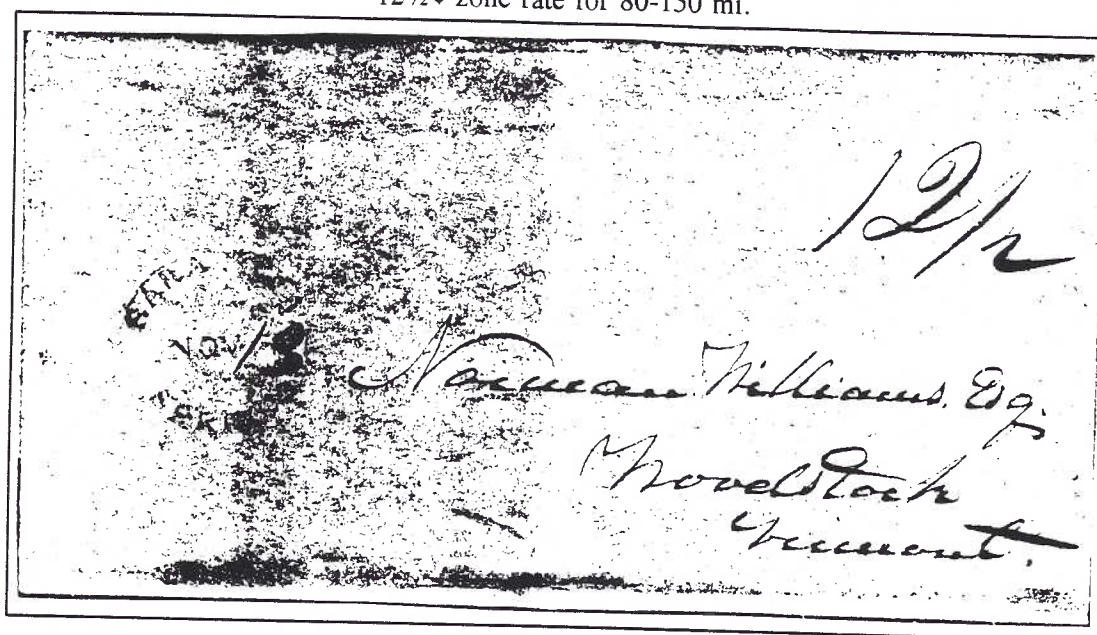 12½¢ zone rate for 80-150 mi.
12/2
NOV 13
Norman Williams. Esq.
Woodstock
Vermont.